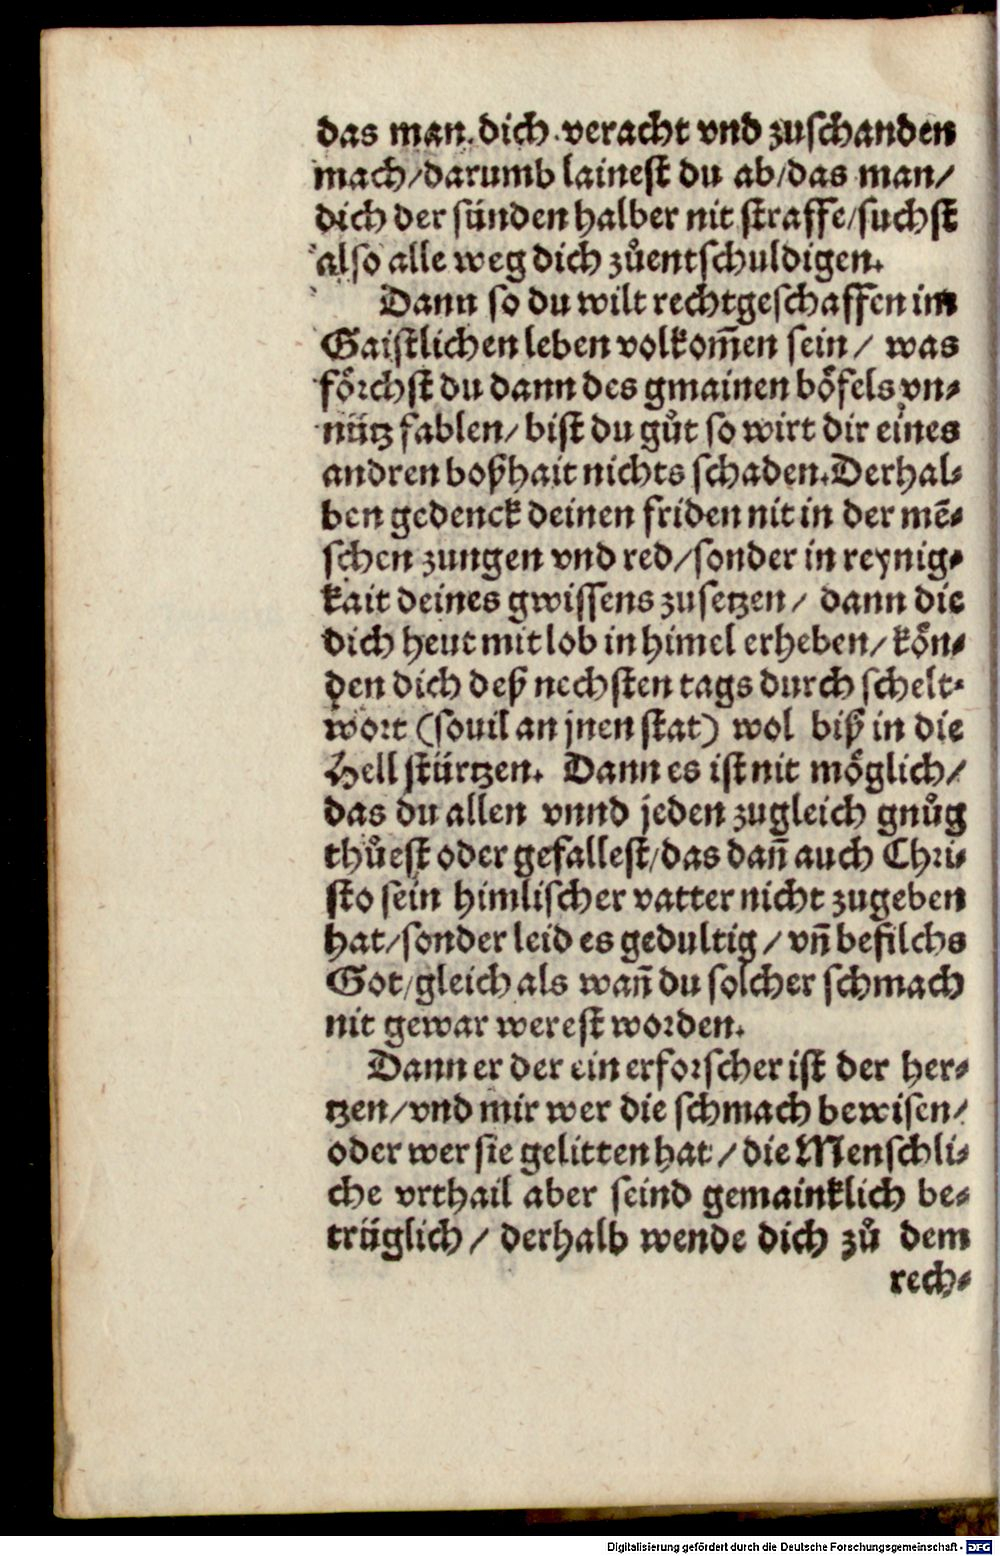 das man dich veracht vnd zuschanden
mach/darumb lainest du ab/das man/
dich der sünden halber nit straffe/suchst
also alle weg dich zůentschuldigen.
Dann so du wilt rechtgeschaffen im
Gaistlichen leben volkom̄en sein/ was
förchst du dann des gmainen böfels vn⸗
nütz fablen/ bist du gůt so wirt dir eines
andren boßhait nichts schaden. Derhal⸗
ben gedenck deinen friden nit in der mē⸗
schen zungen vnd red/sonder in reynig⸗
kait deines gwissens zusetzen/ dann die
dich heut mit lob in himel erheben/ kön⸗
den dich deß nechsten tags durch schelt⸗
wort (souil an jnen stat) wol biß in die
Hell stürtzen. Dann es ist nit möglich/
das du allen vnnd jeden zugleich gnůg
thůest oder gefallest/das dañ auch Chri⸗
sto sein himlischer vatter nicht zugeben
hat/sonder leid es gedultig/ vñ befilchs
Got/gleich als wañ du solcher schmach
nit gewar werest worden.
Dann er der ein erforscher ist der her⸗
tzen/vnd mir wer die schmach bewisen/
oder wer sie gelitten hat/ die Menschli⸗
che vrthail aber seind gemainklich be⸗
trüglich/ derhalb wende dich zů dem
rech⸗
Digitalisierung gefördert durch die Deutsche Forschungsgemeinschaft - DFG